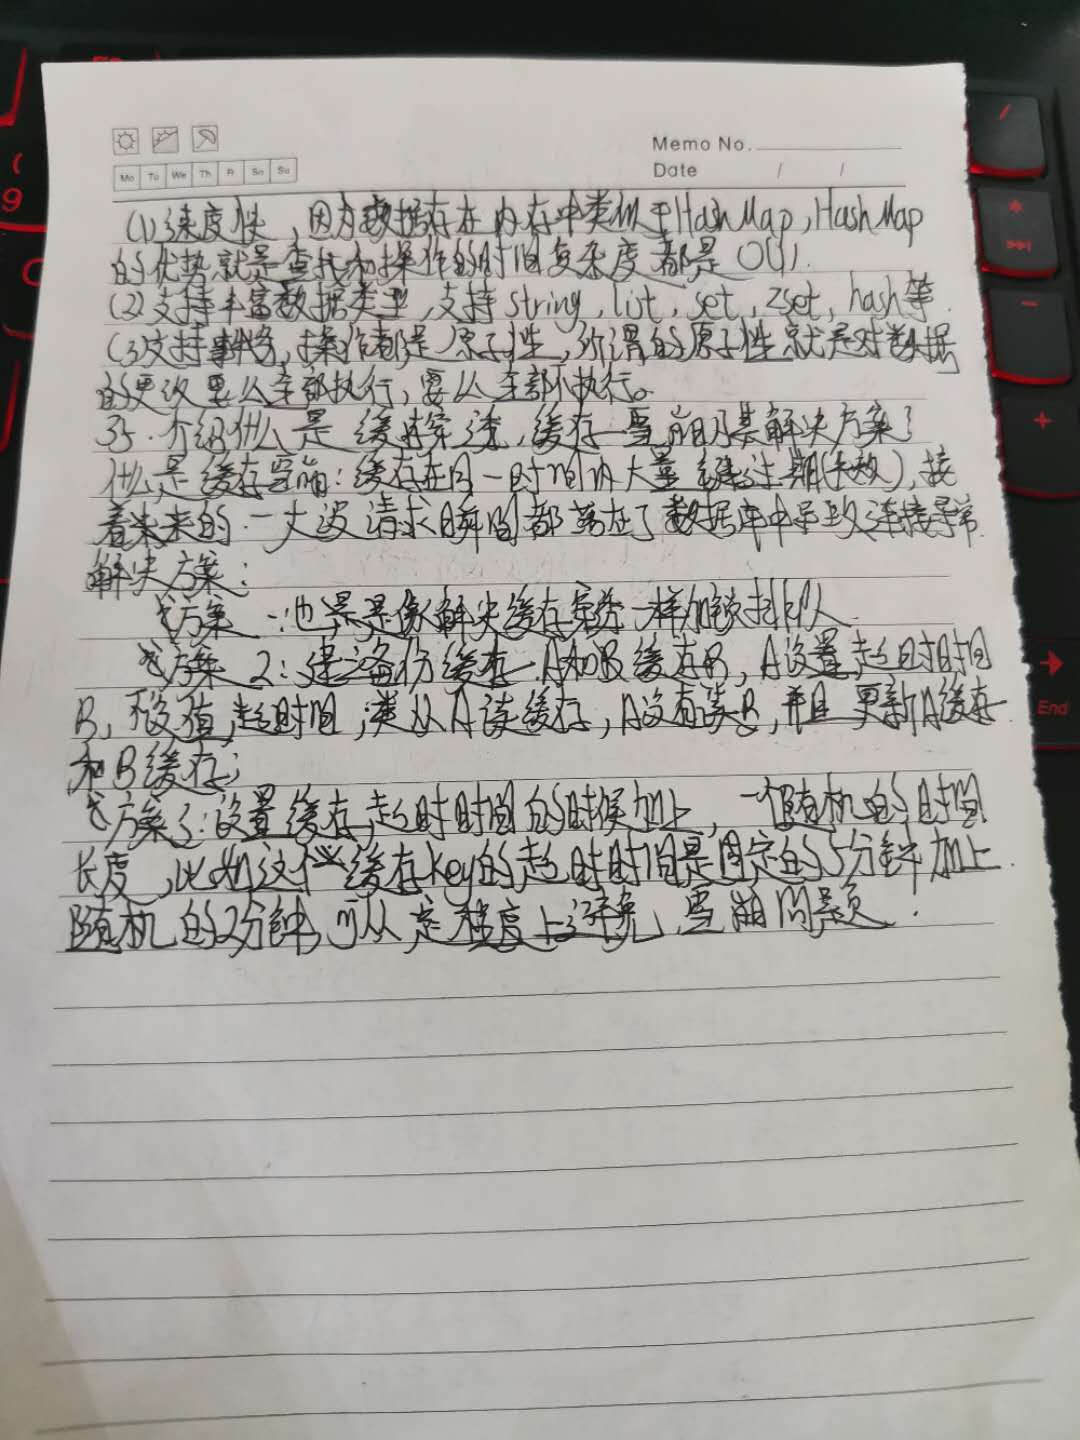 Memo No.
Date / /
Mo Tu We Th Fr Sa Su
(1)速度快,因为数据存在内存中类似于HashMap,HashMap
的优势就是查找和操作的时间复杂度都是O(1).
(2)支持丰富数据类型,支持string, list, set, zset, hash等.
(3)支持事务,操作都是原子性,所谓的原子性就是对数据
的更改要么全部执行,要么全部不执行。
35.介绍什么是缓存穿透,缓存雪崩及其解决方案?
什么是缓存雪崩:缓存在同一时间内大量键过期(失效),接
着来的一大波请求瞬间都落在了数据库中导致连接异常.
解决方案:
方案一:也是像解决缓存穿透一样加锁排队
方案2:建立备份缓存A和B缓存B,A设置超时时间
B,不设值超时间,先从A读缓存,A没有读B,并且更新A缓存
和B缓存;
方案3:设置缓存超时时间的时候加上,一个随机的时间
长度,比如这个缓存key的超时时间是固定的5分钟加上
随机的2分钟,可从定程度上避免,雪崩问题.